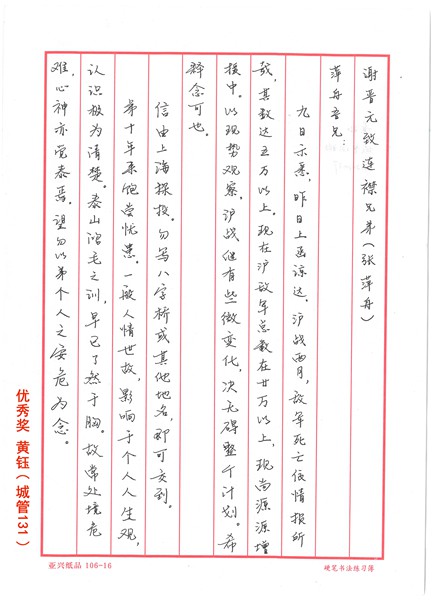 谢晋元致连襟兄弟(张萍舟)
萍舟吾兄：
九日示悉，昨日上函谅达，沪战两月，敌军死亡依情报所
载，其数达五万以上。现在沪敌军总数在廿万以上，现尚源源增
援中。以现势观察，沪战但有些微变化，决无碍整个计划。希
释念可也。
信由上海探投。勿写八字桥或其他地名，即可交到。
弟十年来饱尝忧患。一般人情世故，影响于个人人生观，
认识极为清楚。泰山鸿毛之训，早已了然于胸。故常处境危
难，心神亦觉泰焉。望勿以弟个人之安危为念。
优秀奖 黄钰(城管131)
亚兴纸品 106-16
硬笔书法练习簿